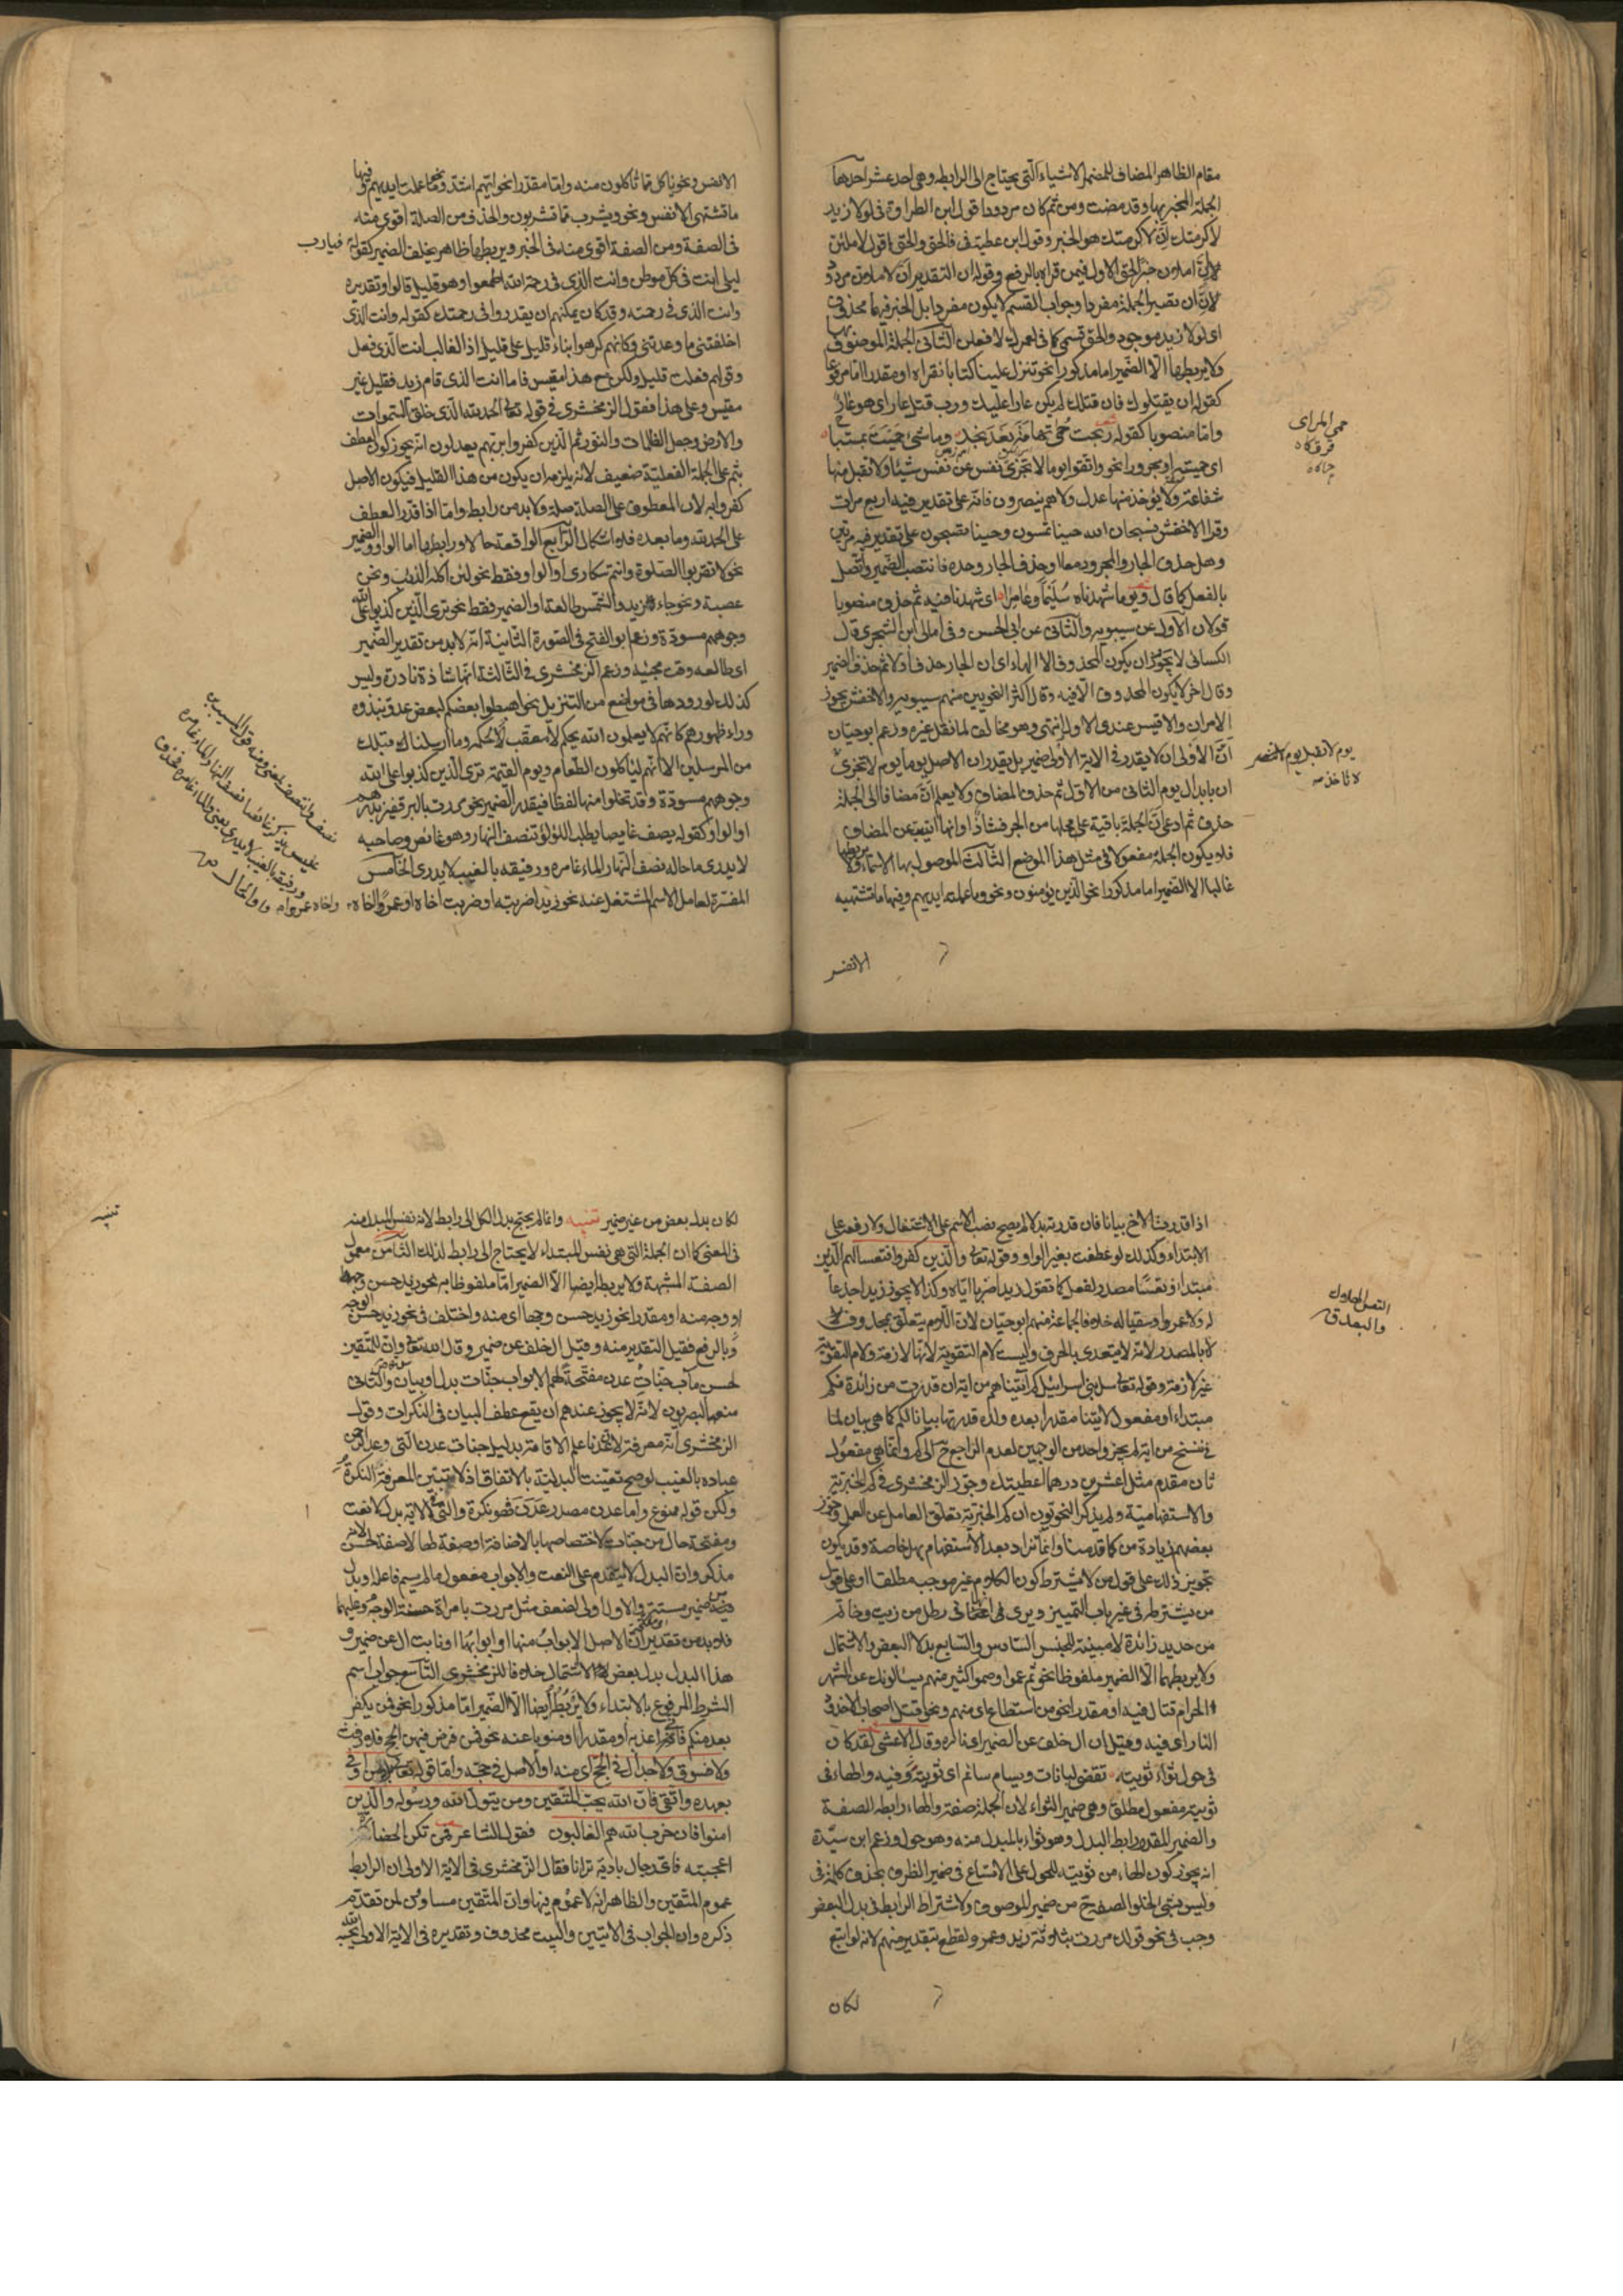 مقام الظاهر المضاف للمضمر الاشياء التى يحتاج الى الرابطه وهى احد عشر احدها
الجملة المخبر بها وقد مضت ومن ثم كان مردودا قول ابن الطراوة فى لولا زيد
لاكرمتك ان لاكرمتك هو الخبر وقول ابن عطية فى فالحق والحق اقول لاملئن
لاملئن خبر الحق الاول فيمن قراه بالرفع وقوله ان التقدير ان لاملئن مردود
لان ان تصير الجملة مفردا وجواب القسم لا يكون مفردا بل الخبر فيهما محذوف
اى لولا زيد موجود والحق قسمى كما فى لعمرك لافعلن الثانى الجملة الموصوف بها
ولا يربطها الا الضمير اما مذكورا نحو تنزل علينا كتابا نقراه او مقدرا اما مرفوعا
كقوله ان يقتلوك فان قتلك لم يكن عارا عليك ورب قتل عار اى هو عار
واما منصوبا كقوله ابحت حمى تهامة بعد نجد وما شئ حميت بمستباح
اى حميته او مجرورا نحو واتقوا يوما لا تجزى نفس عن نفس شيئا ولا تقبل منها
شفاعة ولا يؤخذ منها عدل ولا هم ينصرون فانه على تقدير فيه اربع مرات
وقرا الاخفش فسبحان الله حينا تمسون وحينا تصبحون على تقدير فيه مرتين
وهل حذف الجار والمجرور معا او حذف الجار وحده فانتصب الضمير واتصل
بالفعل كما قال ويوما شهدناه سليما وعامرا اى شهدنا فيه ثم حذف منصوبا
قولان الاول عن سيبويه والثانى عن ابى الحسن وفى امالى ابن الشجرى قال
الكسائى لا يجوز ان يكون المحذوف الا الهاء اى ان الجار حذف اولا ثم حذف الضمير
وقال اخر لا يكون المحذوف الا فيه وقال اكثر النحويين منهم سيبويه والاخفش يجوز
الامران والاقيس عندى الاول انتهى وهو مخالف لما نقل غيره وزعم ابو حيان
ان الاولى ان لا يقدر فى الاية الاولى ضمير بل يقدر ان الاصل يوما يوم لا تجزى
ان بابدال يوم الثانى من الاول ثم حذف المضاف ولا يعلم ان مضافا الى الجملة
حذف ثم ادعى ان الجملة باقية على محلها من الجر فشاذ او انها انيبت عن المضاف
فلا يكون الجملة مفعولا فى مثل هذا الموضع الثالث الموصول بها الاسماء ولا يربطها
غالبا الا الضمير اما مذكورا نحو الذين يؤمنون ونحو وما عملته ايديهم وفيها ما تشتهيه
الانفس
حمى المراى
يوم لا تقبل يوم لا تنصر
الانفس ونحو ياكل مما تاكلون منه واما مقدرا نحو ايهم اشد ونحو وما عملت ايديهم وفيها
ما تشتهى الانفس ونحو ويشرب مما تشربون والحذف من الصلة اقوى منه
فى الصفة ومن الصفة اقوى منه فى الخبر ويربطها ظاهر يخلف الضمير كقوله فيارب
ليلى انت فى كل موطن وانت الذى فى رحمة الله اطمع وهو قليل قالوا وتقديره
وانت الذى فى رحمته وقد كان يمكنهم ان يقدروا فى رحمتك كقوله وانت الذى
اخلفتنى ما وعدتنى وكانهم كرهوا بناء قليل على قليل اذ الغالب انت الذى فعل
وقولهم فعلت قليل ولكن مع هذا مقيس فاما انت الذى قام زيد فقليل غير
مقيس وعلى هذا فقول الزمخشرى فى قوله تعالى الحمد لله الذى خلق السموات
والارض وجعل الظلمات والنور ثم الذين كفروا بربهم يعدلون انه يجوز كون العطف
بثم على الجملة الفعلية ضعيف لانه يلزمه ان يكون من هذا القليل فيكون الاصل
كفروا به لان المعطوف على الصلة صلة ولا بد من رابط واما اذا قدر العطف
على الحمد لله وما بعده فلا اشكال الرابع الواقعة حالا ورابطها اما الواو والضمير
نحو لا تقربوا الصلوة وانتم سكارى او الواو فقط نحو لئن اكله الذئب ونحن
عصبة ونحو جاء زيد والشمس طالعة او الضمير فقط نحو ترى الذين كذبوا على الله
وجوههم مسودة وزعم ابو الفتح فى الصورة الثانية انه لا بد من تقدير الضمير
اى طالعه وقت مجيئه وزعم الزمخشرى فى الثالثة انها شاذة نادرة وليس
كذلك لورودها فى مواضع من التنزيل نحو اهبطوا بعضكم لبعض عدو نبذوه
وراء ظهورهم كانهم لا يعلمون الله يحكم لا معقب لحكمه وما ارسلنا قبلك
من المرسلين الا انهم لياكلون الطعام ويوم القيمة ترى الذين كذبوا على الله
وجوههم مسودة وقد تخلوا منها لفظا فيقدر الضمير نحو مررت بالبر قفيز بدرهم
او الواو كقوله يصف غايصا يطلب اللؤلؤ نتصف النهار وهو غائص وصاحبه
لا يدرى ما حاله نصف النهار الماء غامره ورفيقه بالغيب لا يدرى الخامس
المفسرة لعامل الاسم المشتغل عنه نحو زيدا ضربته او ضربت اخاه او عمرا واخاه
اذا قدرت الاخ بيانا فان قدرته بدلا لم يصح نصب الاسم على الاشتغال ولا رفعه على
الابتداء وكذلك لو عطفت بغير الواو وقوله تعالى والذين كفروا فتعسا لهم الذين
مبتدا وتعسا مصدر لفعل كما تقول زيدا ضربا اياه وكذا لا يجوز زيدا جدعا
له ولا عمروا سقيا له خلافا لجماعة منهم ابو حيان لان اللام يتعلق بمحذوف
لا بالمصدر لانه لا يتعدى بالحرف وليست لام التقوية لانها لازمة ولام التقوية
غير لازمة وقوله تعالى سل بنى اسرائيل كم اتيناهم من اية ان قدرت من زائدة فكم
مبتداء او مفعول لاتينا مقدرا بعده وان قدرتها بيانا لكم كما هى بيان لما
فى ننسخ من اية لم يجز واحد من الوجهين لعدم الراجع ح الى كم وانما هى مفعول
ثان مقدم مثل اعشرين درهما اعطيتك وجوز الزمخشرى فى كم الخبرية
والاستفهامية ولم يذكر النحويون ان كم الخبرية تعلق العامل عن العمل وجوز
بعضهم زيادة من كما قدمنا وانما تزاد بعد الاستفهام بهل خاصة وقد يكون
تجويز ذلك على قول من لا يشترط كون الكلام غير موجب مطلقا او على قول
من يشترط فى غير باب التمييز ويرى فى رطل من زيت وخاتم
من حديد زائدة لا مبينة للجنس السادس والسابع بدلا البعض والاشتمال
ولا يربطهما الا الضمير ملفوظا نحو ثم عموا وصموا كثير منهم يسالونك عن الشهر
الحرام قتال فيه او مقدرا نحو من استطاع اى منهم ونحو قتل اصحاب الاخدود
النار اى فيه وقيل ان ال خلف عن الضمير اى ناره وقال الاعشى لقد كان
فى حول ثواء ثويته تقضى لبانات ويسام سائم اى ثويته فيه والهاء فى
ثويته مفعول مطلق وهى ضمير الثواء لان الجملة صفته والهاء رابطه الصفة
والضمير المقدر رابط البدل وهو ثواء بالمبدل منه وهو حول وزعم ابن سيدة
انه يجوز كون الهاء من ثويته للحول على الاتساع فى ضمير الظرف بحذف كلمة فى
وليس بشئ لخلو الصفة ح من ضمير الموصوف ولاشتراط الرابط فى بدل البعض
وجب فى نحو قولك مررت بثلاثة زيد وعمرو القطع بتقدير منهم لانه لو اتبع
لكان
لكان بدل بعض من غير ضمير تنبيه وانما لم يحتج بدل الكل الى رابط لانه نفس المبدل منه
فى المعنى كما ان الجملة التى هى نفس المبتداء لا يحتاج الى رابط لذلك الثامن معمول
الصفة المشبهة ولا يربطه ايضا الا الضمير اما ملفوظا به نحو زيد حسن وجهه
او وجه منه او مقدرا نحو زيد حسن وجها اى منه واختلف فى نحو زيد حسن الوجه
بالرفع فقيل التقدير منه وقيل ال خلف عن ضمير وقال الله تعالى وان للمتقين
لحسن مآب جنات عدن مفتحة لهم الابواب جنات بدل او بيان والثانى
منعه البصريون لانه لا يجوز عندهم ان يقع عطف البيان فى النكرات وقول
الزمخشرى انه معرفة لان عدنا علم الاقامة بدليل جنات عدن التى وعد الرحمن
عباده بالغيب لو صح تعينت البدلية بالاتفاق اذ لا تبين المعرفة النكرة
ولكن قوله ممنوع واما عدن مصدر عدن فهو نكرة والتى فى الاية بدل لا نعت
ومفتحة حال من جنات لاختصاصها بالاضافة او صفة لها لا صفة لحسن لانه
مذكر ولان البدل لا يتقدم على النعت والابواب مفعول ما لم يسم فاعله او بدل
من ضمير مستتر والاول اولى لضعف مثل مررت بامراة حسنة الوجه وعليهما
فلا بد من تقدير ان الاصل الابواب منها او ابوابها او نابت ال عن ضمير و
هذا البدل بدل بعض لا اشتمال خلافا للزمخشرى التاسع جواب اسم
الشرط المرفوع بالابتداء ولا يربطه ايضا الا الضمير اما مذكورا نحو فمن يكفر
بعد منكم فانى اعذبه او مقدرا او منوبا عنه نحو فمن فرض فيهن الحج فلا رفث
ولا فسوق ولا جدال فى الحج اى منه او الاصل فى حجه واما قوله تعالى من اوفى
بعهده واتقى فان الله يحب المتقين ومن يتول الله ورسوله والذين
امنوا فان حزب الله هم الغالبون فقول الشاعر فمن تكن الحضارة
اعجبته فاى رجال بادية ترانا فقال الزمخشرى فى الاية الاولى ان الرابط
عموم المتقين والظاهر انه لا عموم فيها وان المتقين مساوون لمن تقدم
ذكره وان الجواب فى الايتين والبيت محذوف وتقديره فى الاية الاولى يحبه الله
تنبيه